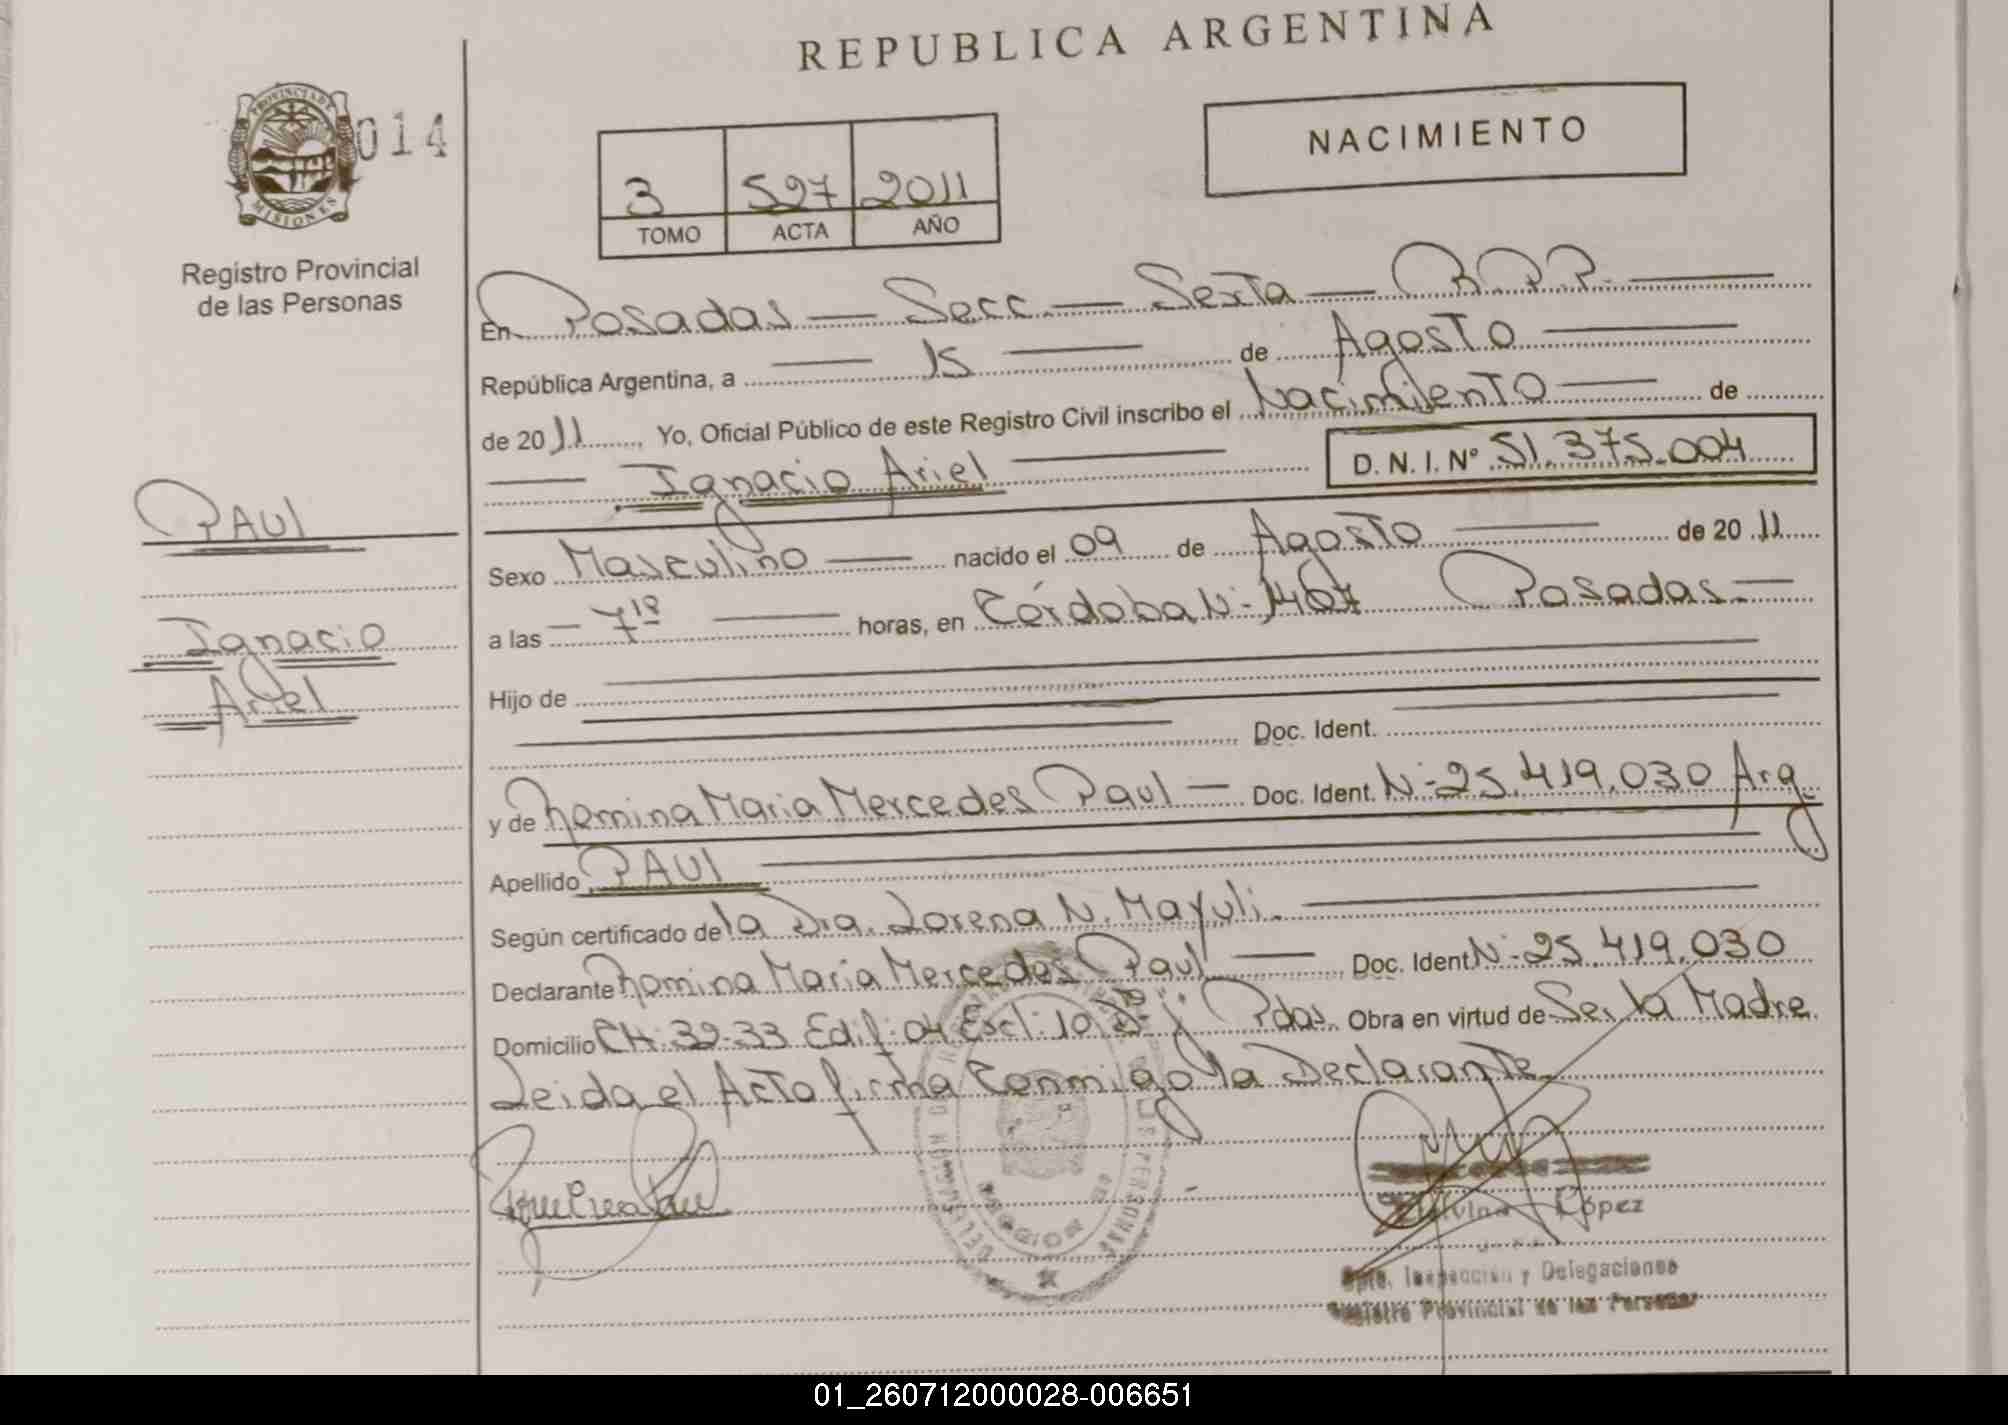 REPUBLICA ARGENTINA
PROVINCIA DE MISIONES
014
NACIMIENTO
3 527 2011
TOMO ACTA AÑO
Registro Provincial
de las Personas
En Posadas — Secc. — Sexta — R.P.P. —
República Argentina, a — 15 — de Agosto —
de 2011, Yo, Oficial Público de este Registro Civil inscribo el Nacimiento — de
— Ignacio Ariel — D. N. I. Nº 51.375.004
PAUL
Ignacio
Ariel
Sexo Masculino — nacido el 09 de Agosto — de 2011
a las — 7¹⁸ — horas, en Córdoba N- 1467 Posadas —
Hijo de
Doc. Ident.
y de Romina Maria Mercedes Paul — Doc. Ident. N- 25.419.030 Arg.
Apellido PAUL
Según certificado de la Dra. Lorena N. Mayuli.
Declarante Romina Maria Mercedes Paul — Doc. Ident N- 25.419.030
Domicilio CH. 32-33 Edif. 04 Escl. 10 Pdas. Obra en virtud de Ser la Madre
Leida el Acta firma Conmigo la Declarante.
López
Dpto. Inspección y Delegaciones
Registro Provincial de las Personas
01_260712000028-006651